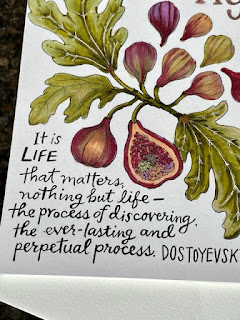 It is
LIFE
that matters,
nothing but life —
the process of discovering,
the ever-lasting and
perpetual process. DOSTOYEVSK